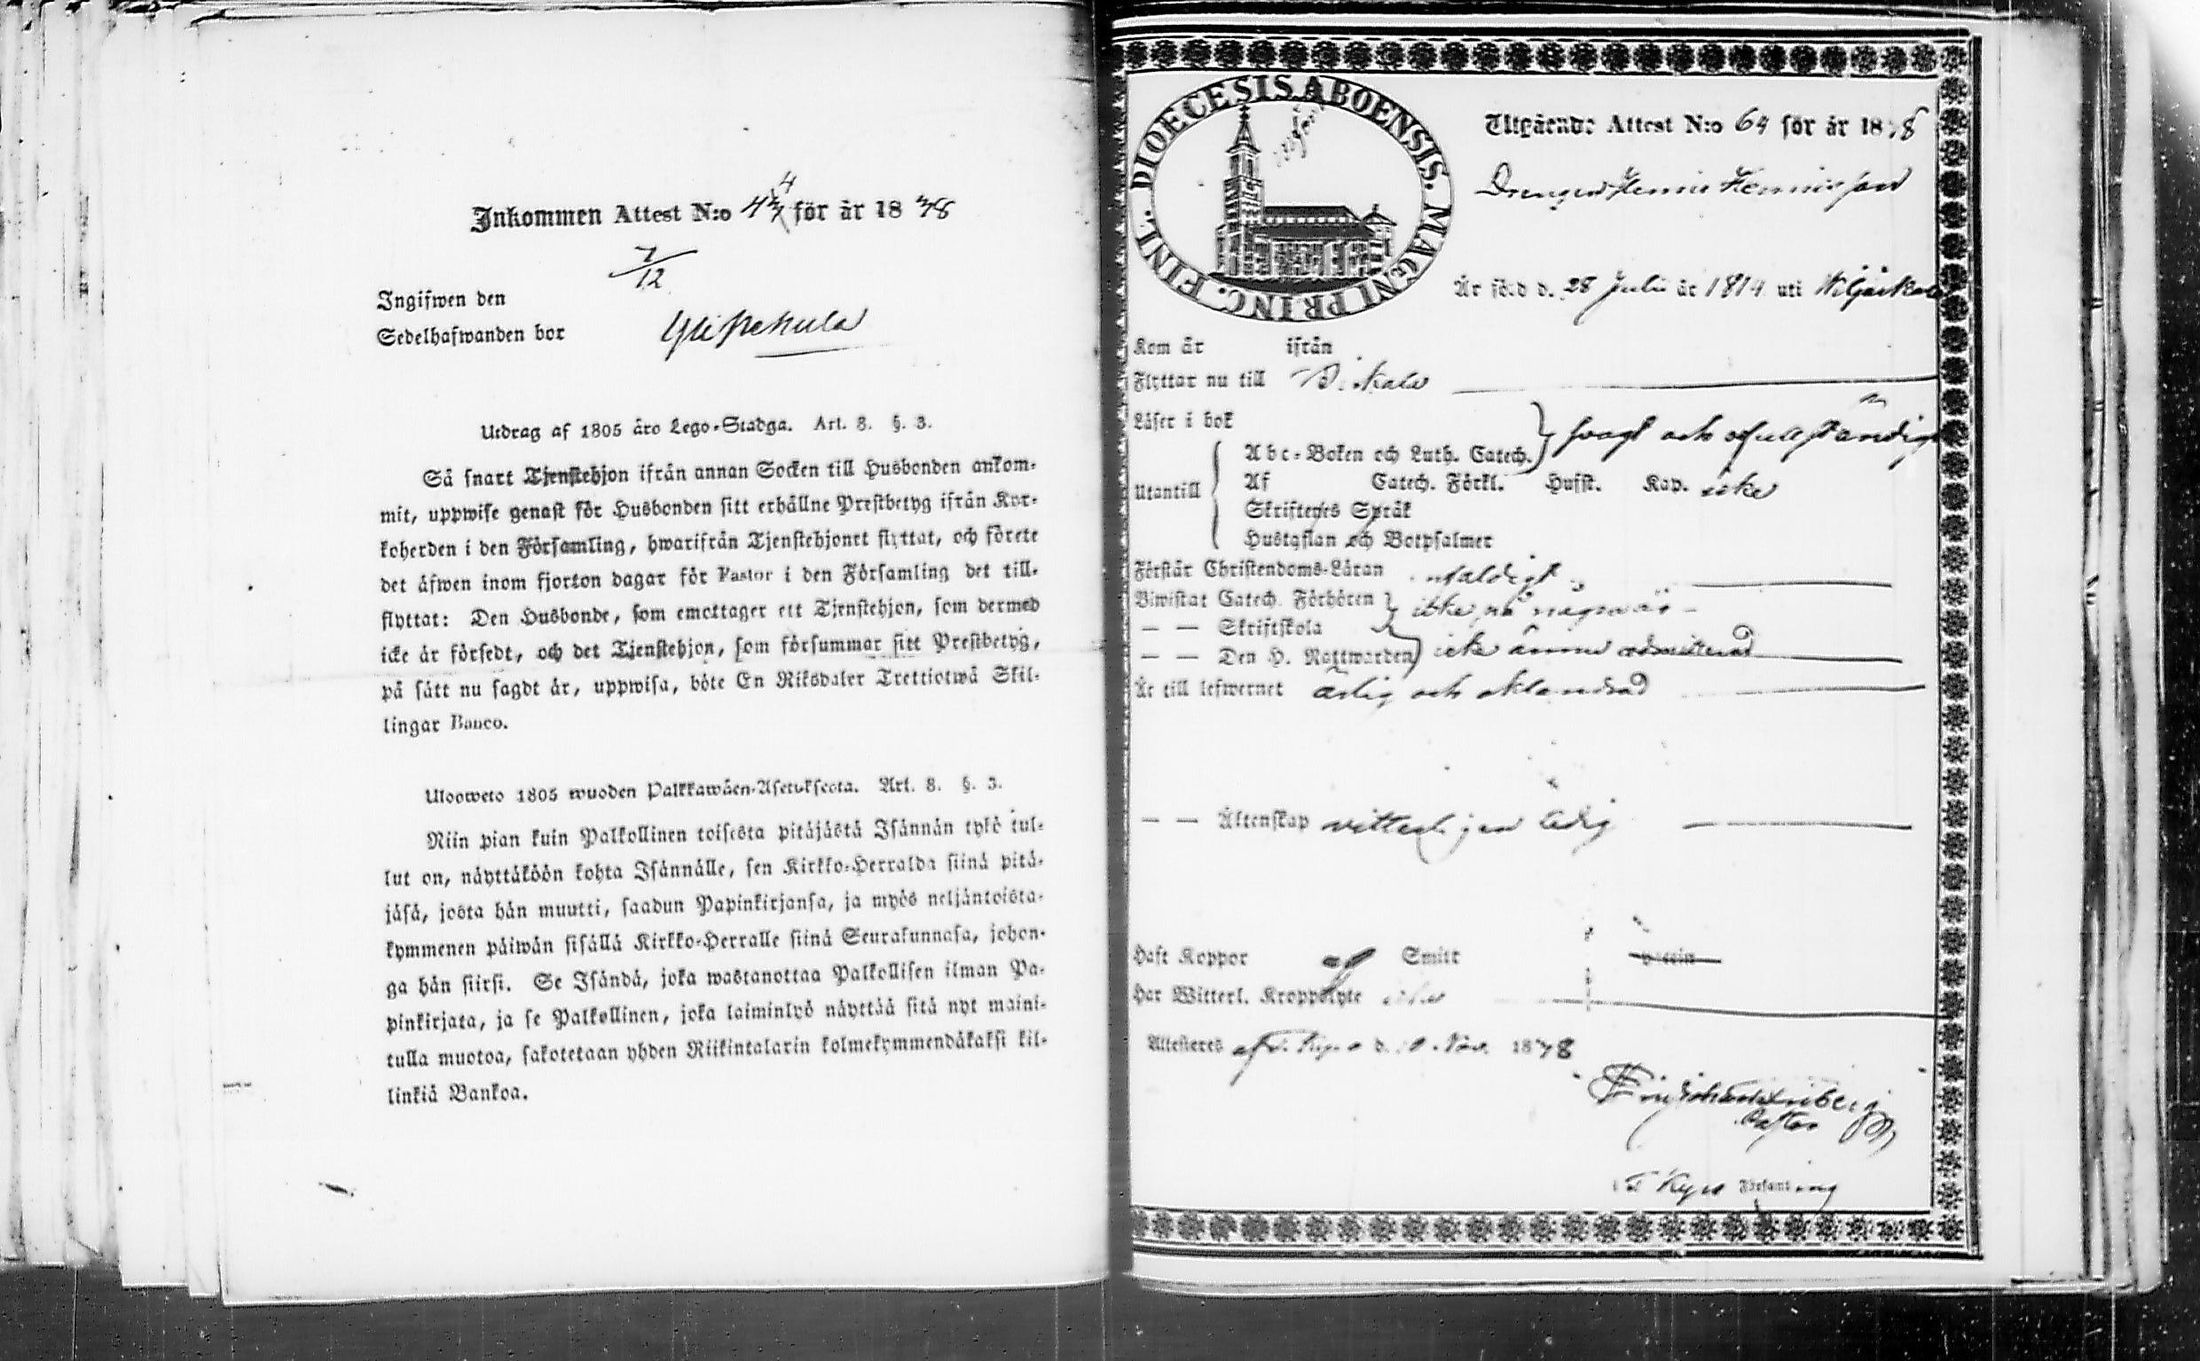 Inkommen Attest N:o 44 för år 1838
7/12
Ingifwen den
Sedelhafwanden bor
Utdrag af 1805 års Lego-Stadga. Art. 8. §. 3.
Så snart Tjenstehjon ifrån annan Socken till Husbonden ankom-
mit, uppwise genast för Husbonden sitt erhållne Prestbetyg ifrån Kyr-
koherden i den Församling, hwarifrån Tjenstehjonet flyttat, och förete
det äfwen inom fjorton dagar för Pastor i den Församling det till-
flyttat: Den Husbonde, som emottager ett Tjenstehjon, som dermed
icke är försedt, och det Tjenstehjon, som försummar sitt Prestbetyg,
på sätt nu sagdt är, uppwisa, böte En Riksdaler Trettiotwå Skil-
lingar Banco.
Uloosweto 1805 wuoden Palkkawäen-Asetuksesta. Art. 8. §. 3.
Niin pian kuin Palkollinen toisesta pitäjästä Isännän tykö tul-
lut on, näyttäköön kohta Isännälle, sen Kirkko-Herralda siinä pitä-
jäsä, josta hän muutti, saadun Papinkirjansa, ja myös neljäntoista-
kymmenen päiwän sisällä Kirkko-Herralle siinä Seurakunnasa, johon-
ga hän siirsi. Se Isändä, joka wastanottaa Palkollisen ilman Pa-
pinkirjata, ja se Palkollinen, joka laiminlyö näyttää sitä nyt maini-
tulla muotoa, sakotetaan yhden Riikintalarin kolmekymmendäkaksi kil-
linkiä Bankoa.
DIOECESIS ABOENSIS. MAGNI PRINC. FINL.
Utgående Attest N:o 64 för år 1838
Drengen Henric Henricsson
Är född d. 28 Julii år 1814 uti Wiljakala
Kom år ifrån
Flyttar nu till
Läser i bok
Abc-Boken och Luth. Catech. } svagt och ofullständigt
Utantill { Af Catech. Förkl. Husst. Kap. icke
Skriftenes Språk
Hustaflan och Botpsalmer
Förstår Christendoms-Läran enfaldigt
Biwistat Catech. Förhören } icke på några år
— — Skriftskola
— — Den H. Nattwarden } icke ännu admitterad
Är till lefwernet ärlig och oklandrad
— — Äktenskap vitterligen ledig
Haft Koppor Smitt
Har Witterl. Kroppslyte icke
Attesteres af T. Kyro d. 10 Nov. 1838
Pastor
i T. Kyro Församling